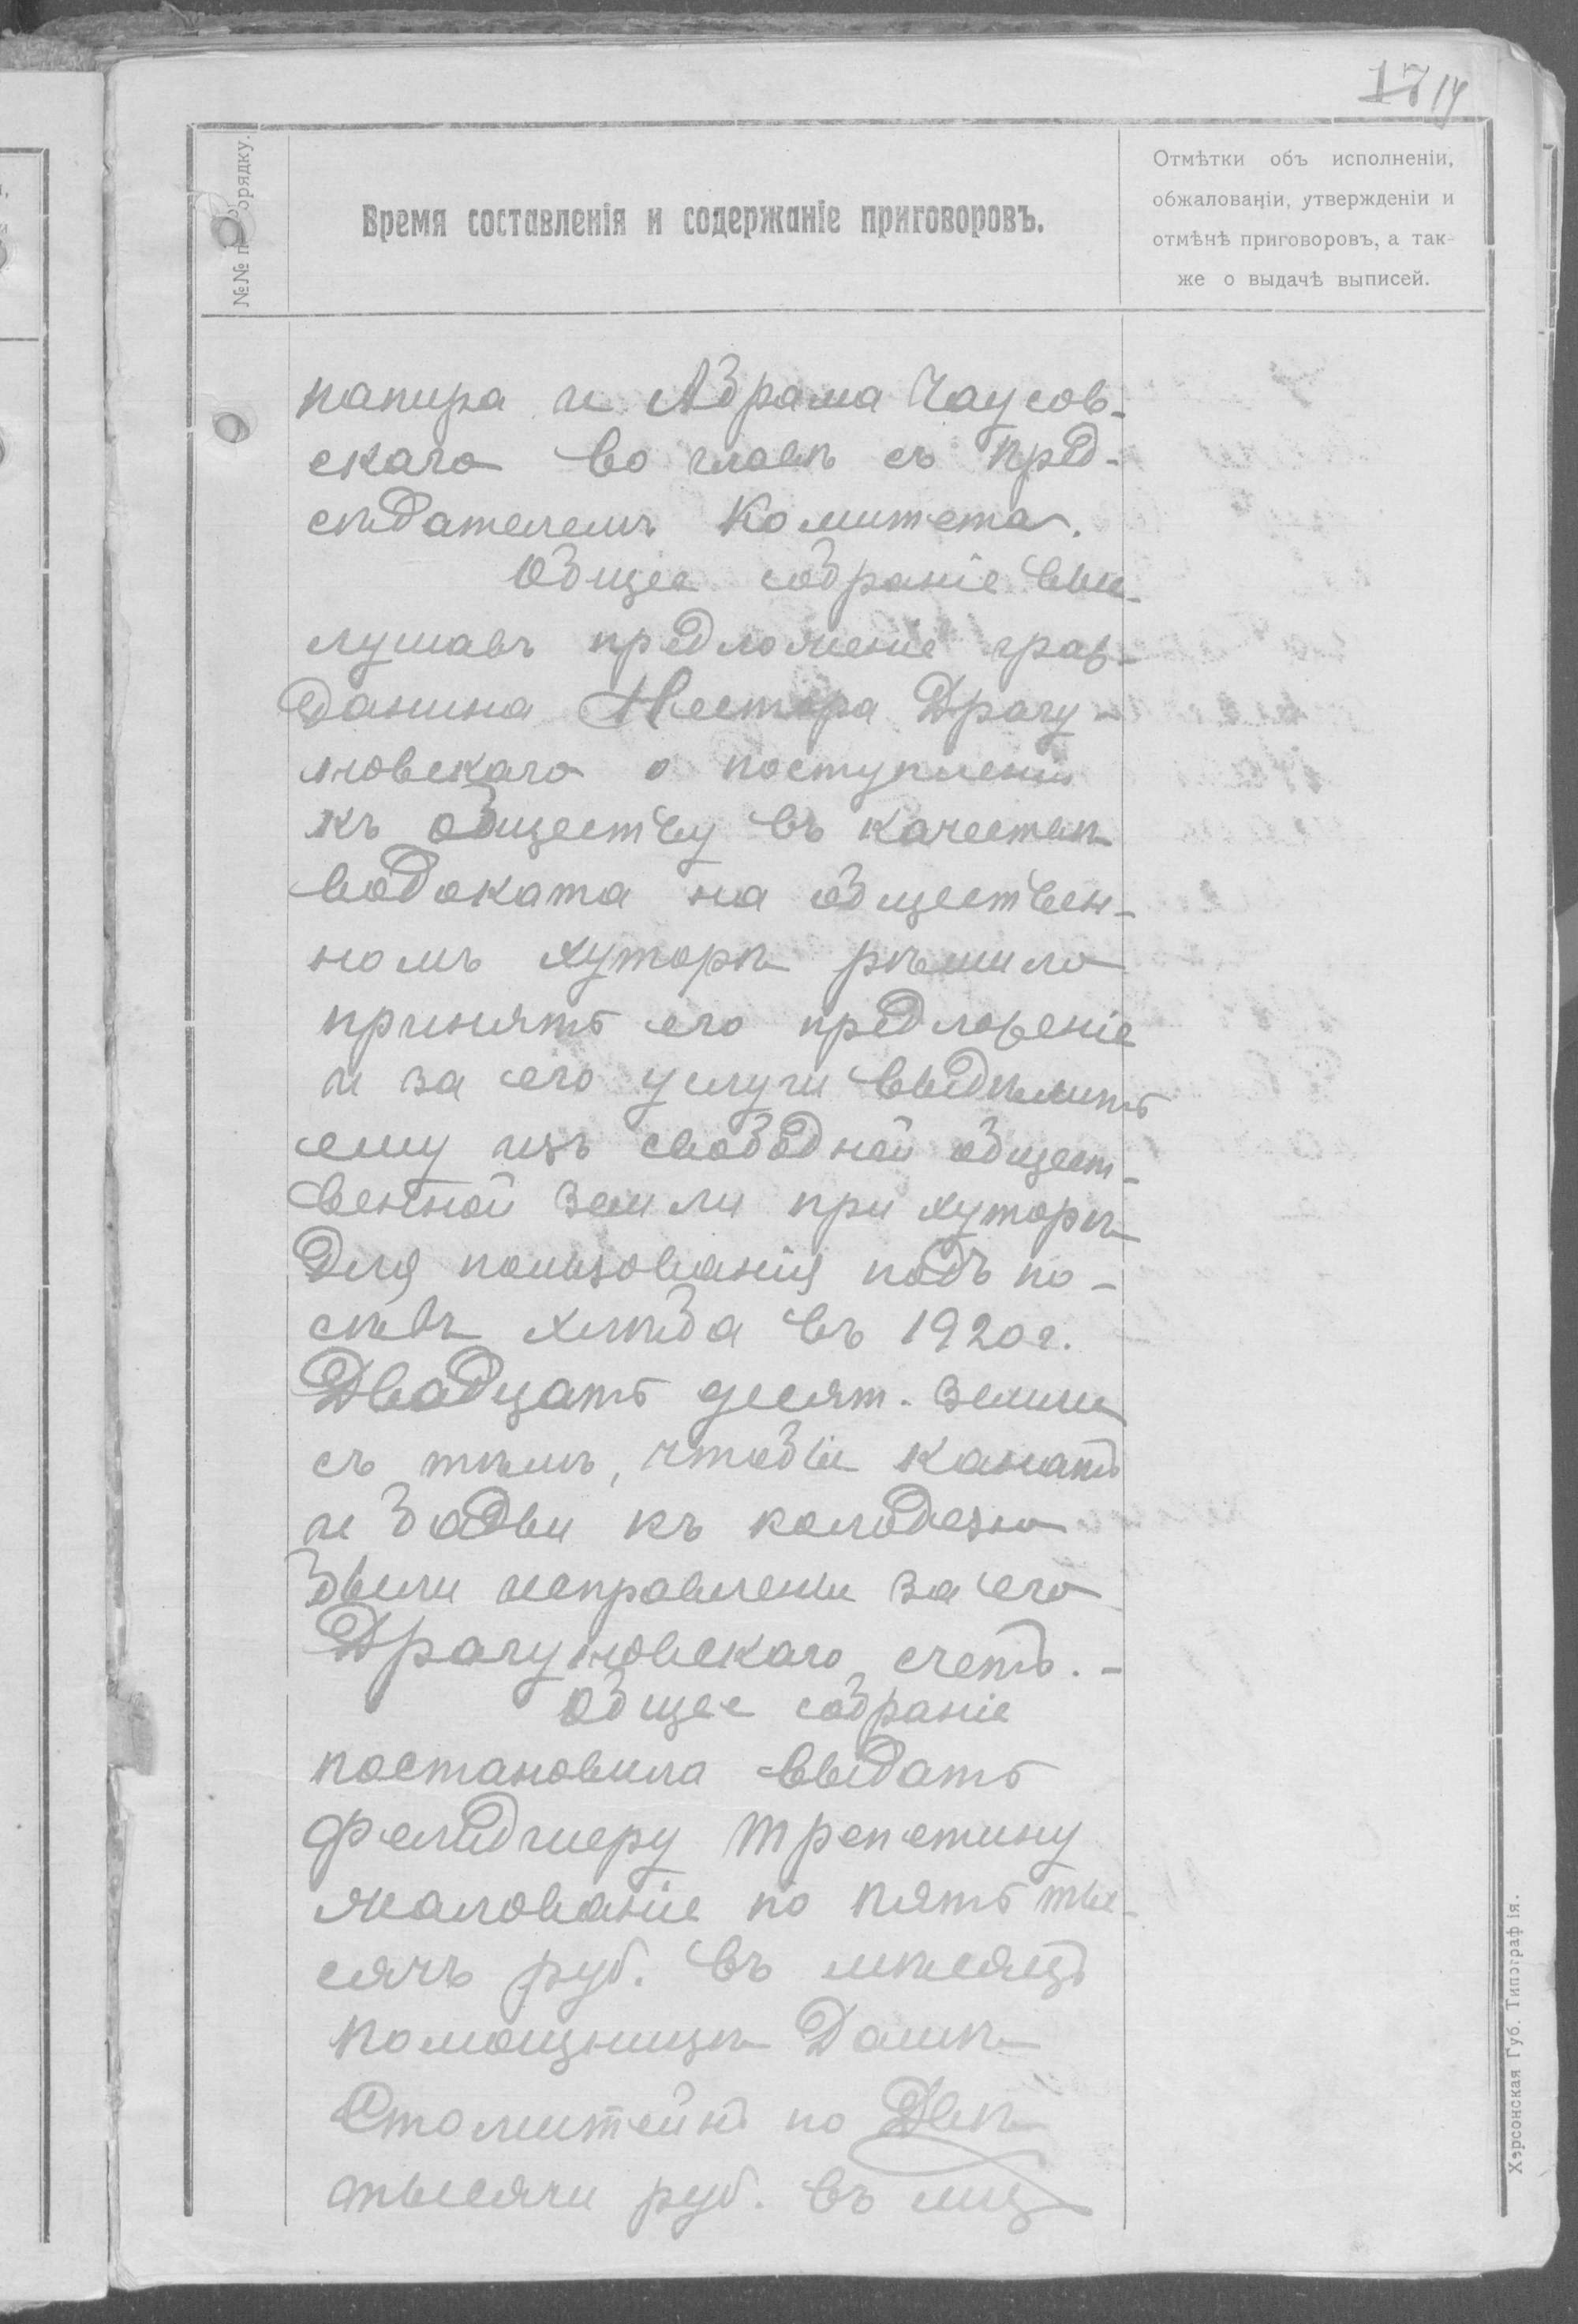 17 14
№№ по порядку.
Время составленія и содержаніе приговоровъ.
Отмѣтки объ исполненіи,
обжалованіи, утвержденіи и
отмѣнѣ приговоровъ, а так-
же о выдачѣ выписей.
папира и Абрама Чаусов-
скаго во главѣ съ пред-
сѣдателемъ Комитета.
Общее собраніе вы-
лушавъ предложеніе граж-
данина Нестора Драгу-
новскаго о поступленіи
къ обществу въ качествѣ
водоката на обществен-
номъ хуторѣ рѣшило
принять его предложеніе
и за его услуги выдѣлить
ему изъ свободной общест-
венной земли при хуторѣ
для пользованія подъ по-
сѣвъ хлѣба въ 1920 г.
Двадцать десят. земли
съ тѣмъ, чтобы канатъ
и бадьи къ колодезю
были исправлены за его
Драгуновскаго счетъ. -
Общее собраніе
постановило выдать
Фельдшеру Трепетину
жалованіе по пять ты-
сячъ руб. въ мѣсяцъ
помощницѣ
по Двѣ
тысячи руб. въ мць
Херсонская Губ. Типографія.